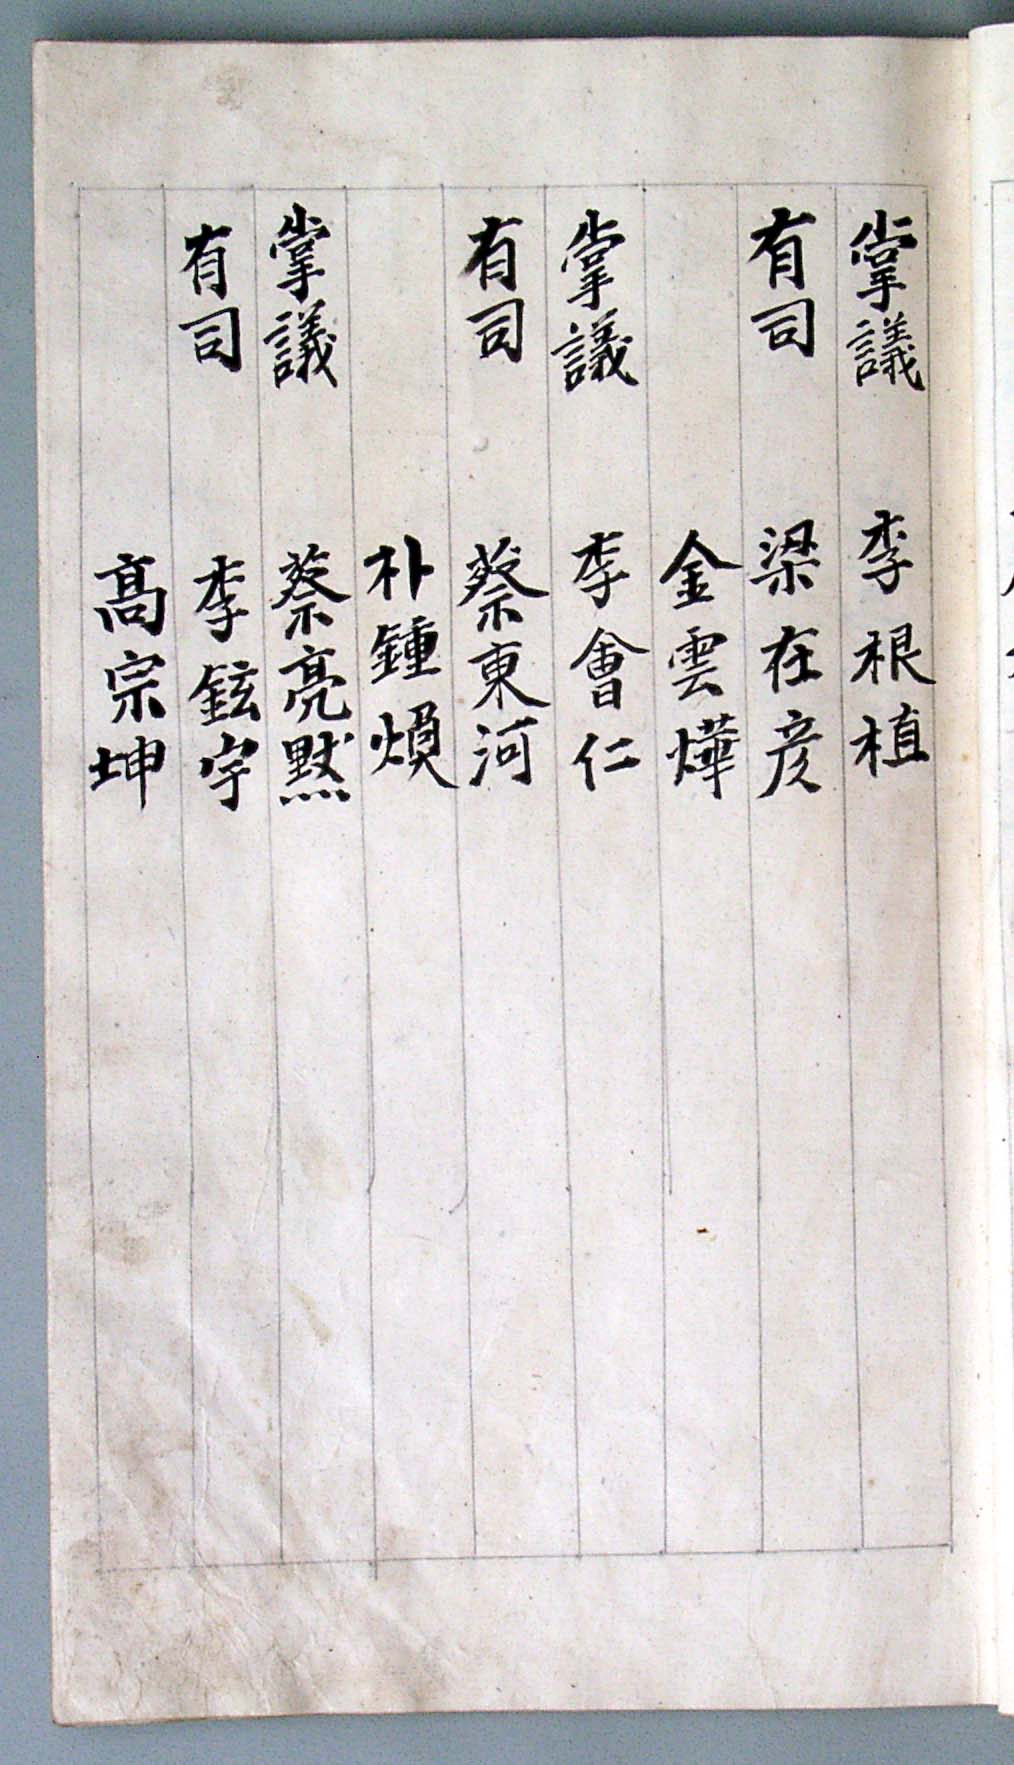 掌議 李根植
有司 梁在彦
金雲燁
掌議 李會仁
有司 蔡東河
朴鍾熉
掌議 蔡亮默
有司 李鉉宇
高宗坤